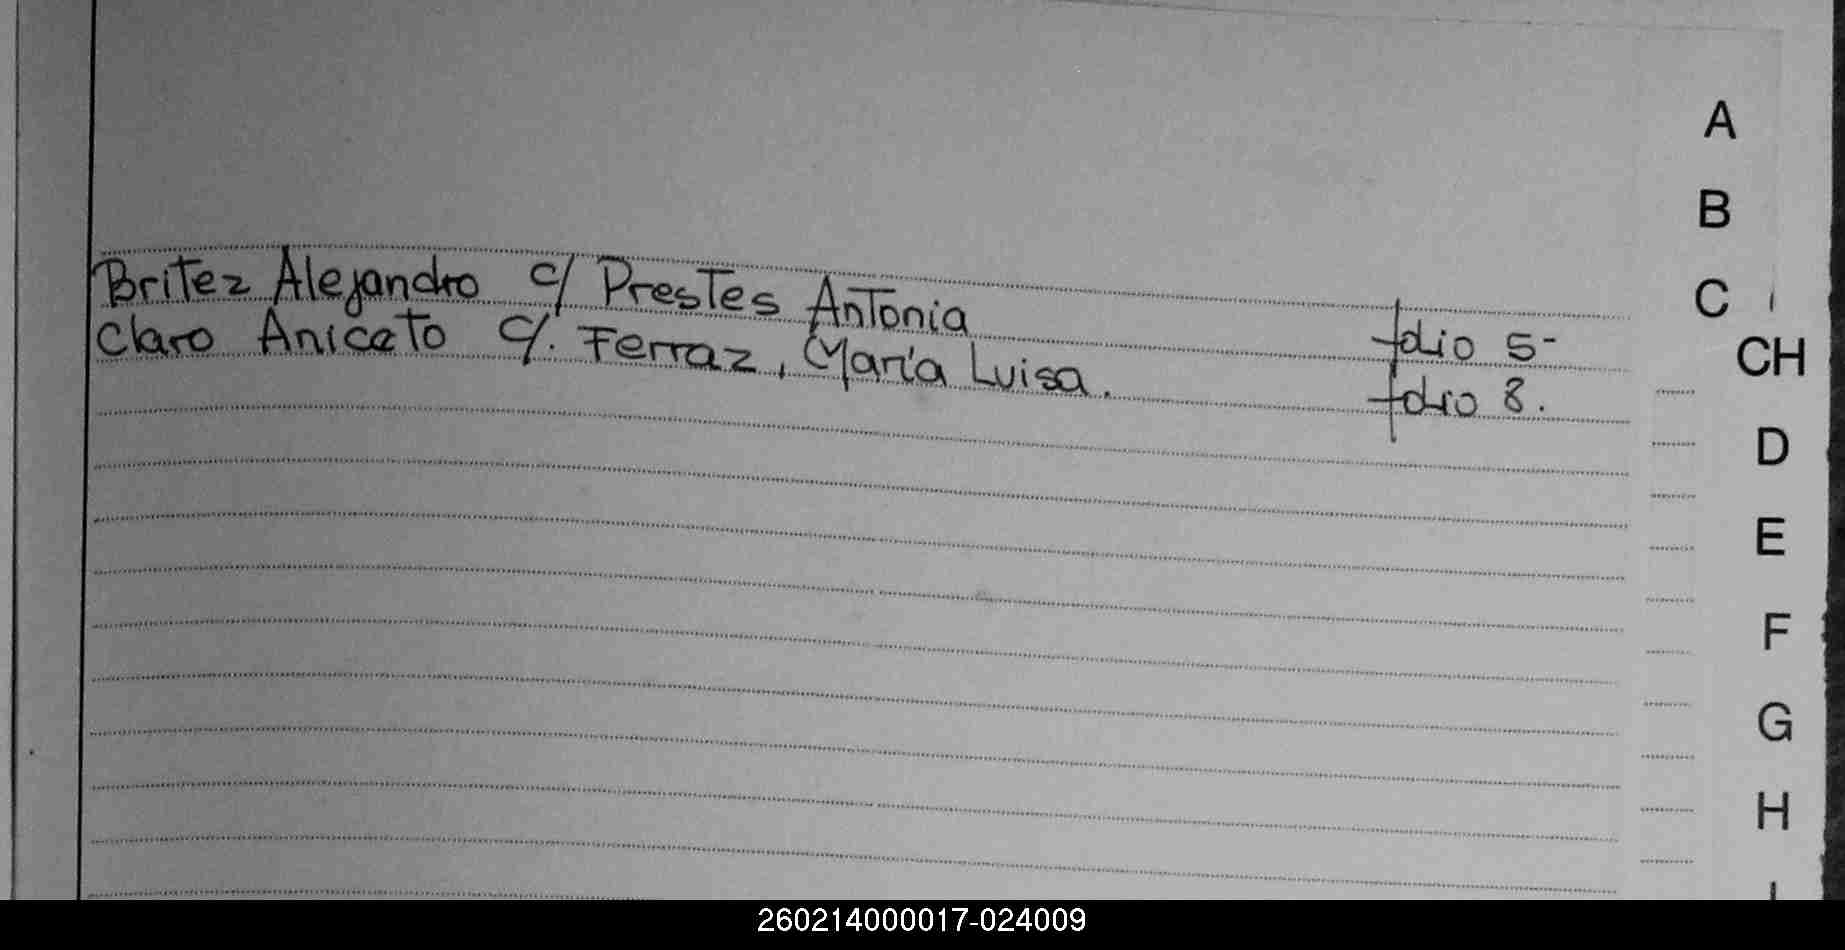 A
B
C
Britez Alejandro c/ Prestes Antonia folio 5-
CH
Claro Aniceto c/. Ferraz, María Luisa. folio 8.
D
E
F
G
H
I
260214000017-024009